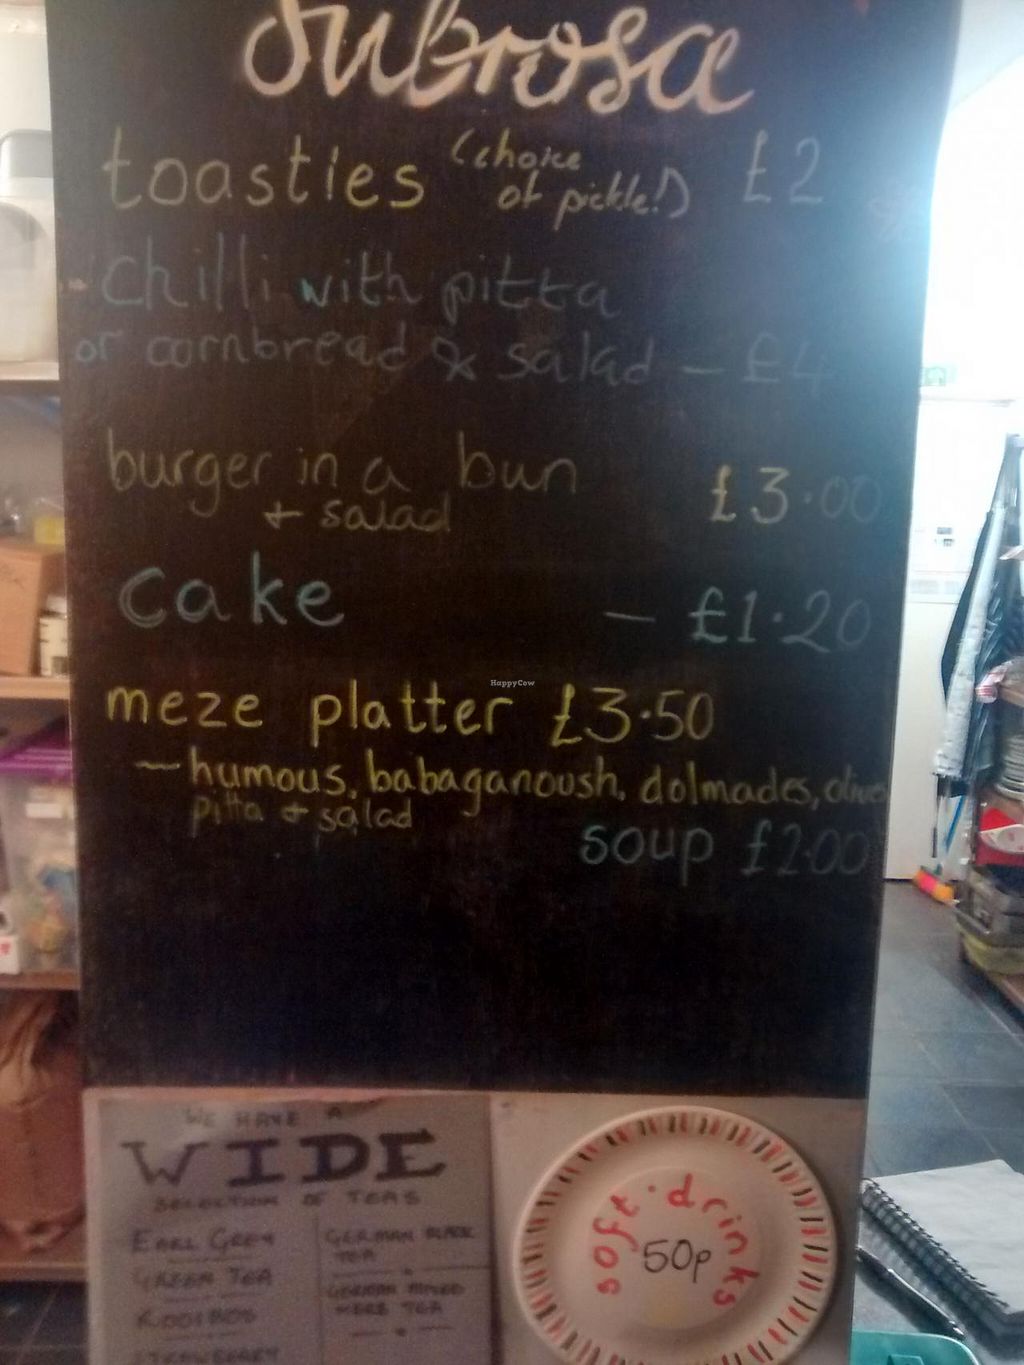 Subrosa
toasties (choice of pickle!) £2
chilli with pitta
or cornbread & salad - £4
burger in a bun
+ salad £3.00
cake - £1.20
HappyCow
meze platter £3.50
- humous, babaganoush, dolmades, olives
pitta + salad
soup £2.00
WE HAVE A
WIDE
SELECTION OF TEAS
EARL GREY
GREEN TEA
ROOIBOS
STRAWBERRY
GERMAN BLACK
TEA
GERMAN MIXED
HERB TEA
soft drinks
50p